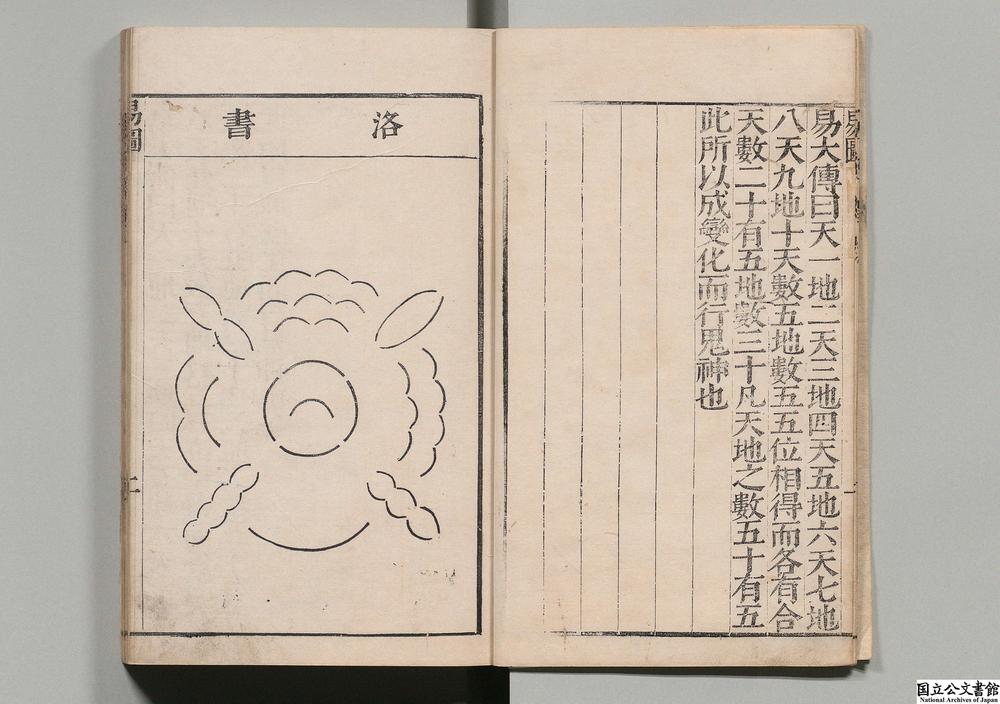 易大傳曰天一地二天三地四天五地六天七地
八天九地十天數五地數五五位相得而各有合
天數二十有五地數三十凡天地之數五十有五
此所以成變化而行鬼神也
易圖
洛書
易圖
二
国立公文書館
National Archives of Japan